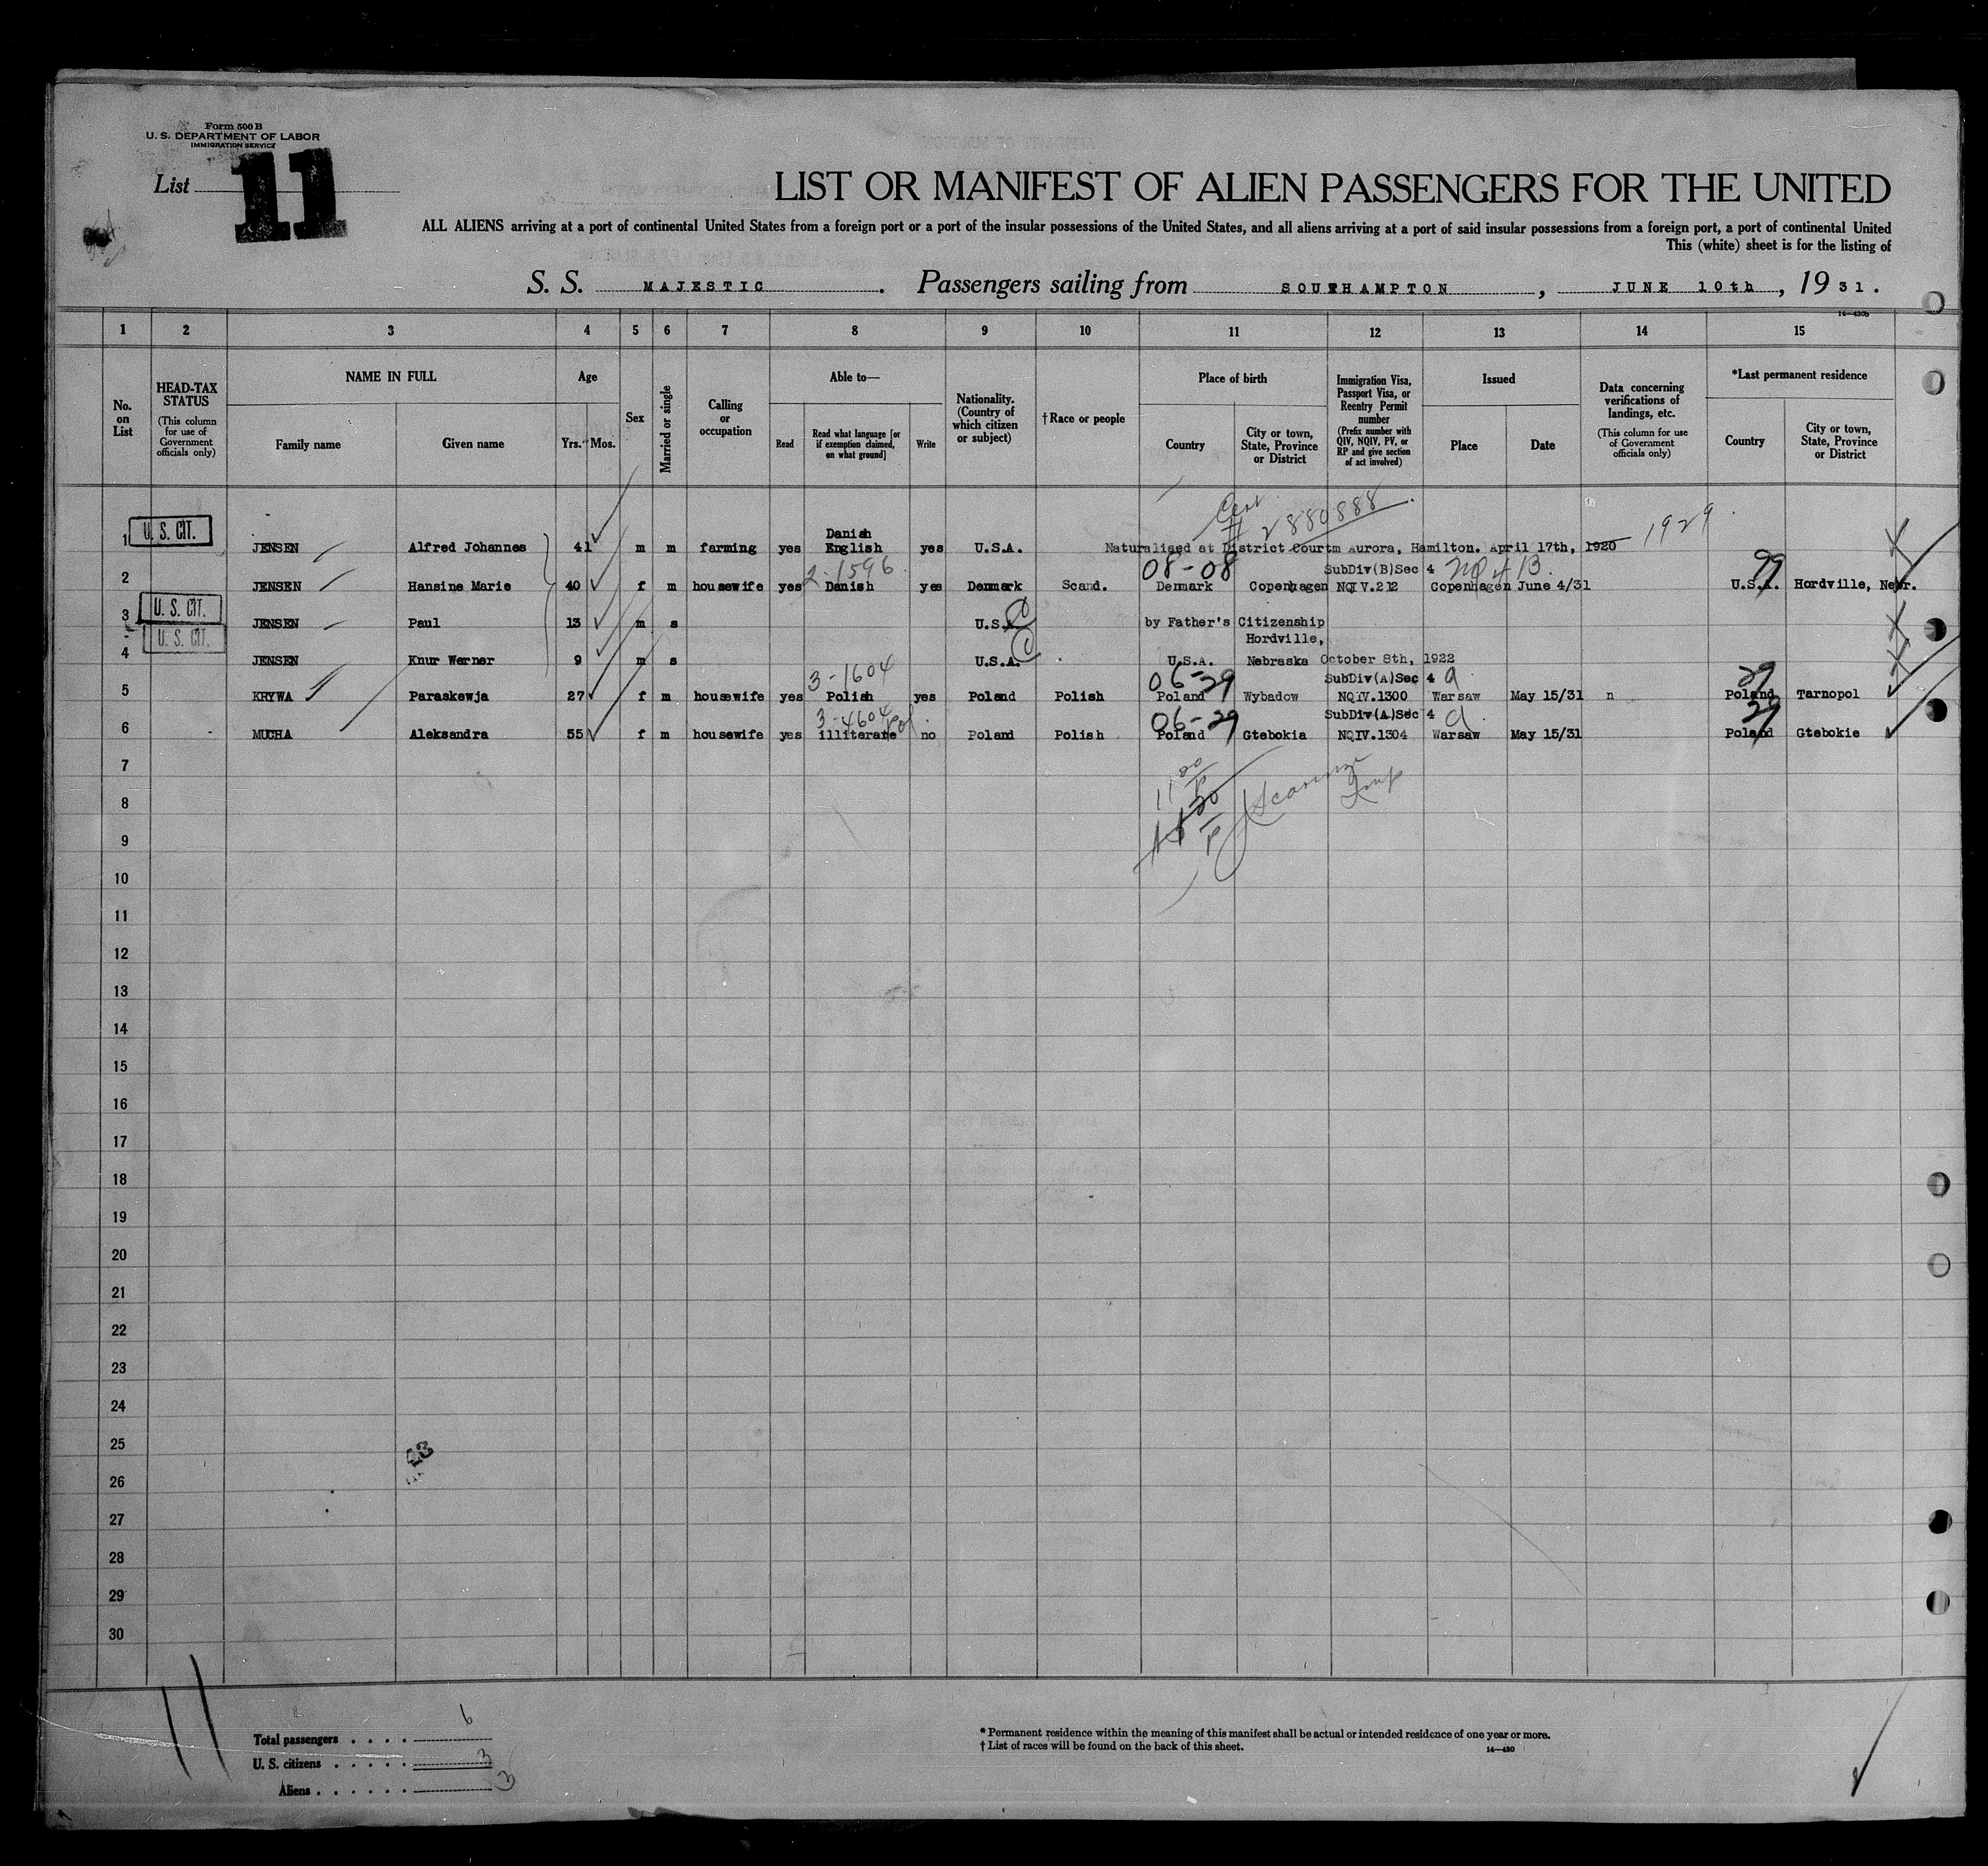 Form 500 B
U. S. DEPARTMENT OF LABOR
IMMIGRATION SERVICE
List 11
LIST OR MANIFEST OF ALIEN PASSENGERS FOR THE UNITED
ALL ALIENS arriving at a port of continental United States from a foreign port or a port of the insular possessions of the United States, and all aliens arriving at a port of said insular possessions from a foreign port, a port of continental United
This (white) sheet is for the listing of
S. S. MAJESTIC . Passengers sailing from SOUTHAMPTON , JUNE 10th , 1931.
14—430b
1 2 3 4 5 6 7 8 9 10 11 12 13 14 15
No. on List
HEAD-TAX STATUS (This column for use of Government officials only)
NAME IN FULL
Family name Given name
Age
Yrs. Mos.
Sex
Married or single
Calling or occupation
Able to—
Read Read what language [or if exemption claimed, on what ground] Write
Nationality. (Country of which citizen or subject)
† Race or people
Place of birth
Country City or town, State, Province or District
Immigration Visa, Passport Visa, or Reentry Permit number (Prefix number with QIV, NQIV, PV, or RP and give section of act involved)
Issued
Place Date
Data concerning verifications of landings, etc. (This column for use of Government officials only)
*Last permanent residence
Country City or town, State, Province or District
Cert # 2880888
1929
Danish
1 U. S. CIT. JENSEN Alfred Johannes 41 m m farming yes English yes U.S.A. Naturalised at District Courtm Aurora, Hamilton. April 17th, 1920
2-1596 08-08 SubDiv(B)Sec 4 99
2 JENSEN Hansine Marie 40 f m housewife yes Danish yes Denmark Scand. Denmark Copenhagen NQIV.212 Copenhagen June 4/31 U.S.A. Hordville, Nebr.
3 U. S. CIT. JENSEN Paul 13 m s U.S.A. by Father's Citizenship
U. S. CIT. Hordville,
4 JENSEN Knur Werner 9 m s U.S.A. U.S.A. Nebraska October 8th, 1922
3-1604 06-29 SubDiv(A)Sec 4 a 29
5 KRYWA Paraskewja 27 f m housewife yes Polish yes Poland Polish Poland Wybadow NQIV.1300 Warsaw May 15/31 n Poland Tarnopol
3-4604 Pol. 06-29 SubDiv(A)Sec 4 a 29
6 MUCHA Aleksandra 55 f m housewife yes illiterate no Poland Polish Poland Gtebokia NQIV.1304 Warsaw May 15/31 Poland Gtebokie
7
8
9
10
11
12
13
14
15
16
17
18
19
20
21
22
23
24
25
26
27
28
29
30
11
Total passengers . . . . 6
U. S. citizens . . . . . 3
Aliens . . . . . . 3
* Permanent residence within the meaning of this manifest shall be actual or intended residence of one year or more.
† List of races will be found on the back of this sheet.
14—430